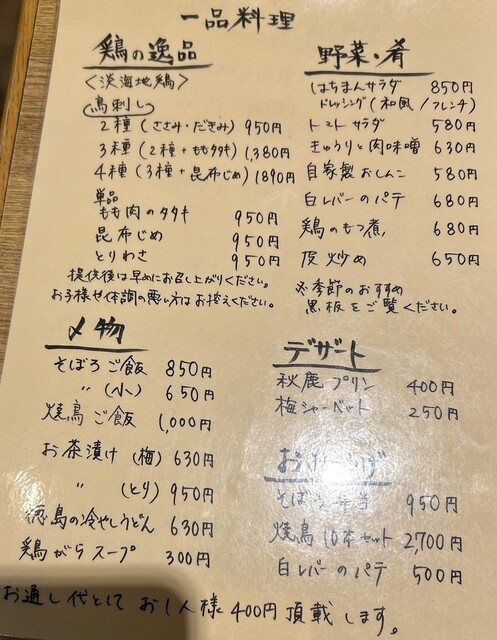 一品料理
鶏の逸品
〈淡海地鶏〉
鳥刺し
2種(ささみ・だきみ) 950円
3種(2種+ももタタキ) 1,380円
4種(3種+昆布じめ) 1890円
単品
もも肉のタタキ 950円
昆布じめ 950円
とりわさ 950円
提供後は早めにお召し上がりください。
お子様や体調の悪い方はお控えください。
〆物
そぼろご飯 850円
〃 (小) 650円
焼鳥ご飯 1,000円
お茶漬け(梅) 630円
〃 (とり) 950円
徳島の冷やしうどん 630円
鶏がらスープ 300円
野菜・肴
はちまんサラダ 850円
ドレッシング(和風/フレンチ)
トマトサラダ 580円
きゅうりと肉味噌 630円
自家製おしんこ 580円
白レバーのパテ 680円
鶏のもつ煮 680円
皮炒め 650円
※季節のおすすめ
黒板をご覧ください。
デザート
秋鹿プリン 400円
梅シャーベット 250円
おみやげ
そぼろ弁当 950円
焼鳥10本セット 2,700円
白レバーのパテ 500円
お通し代としてお一人様400円頂戴します。